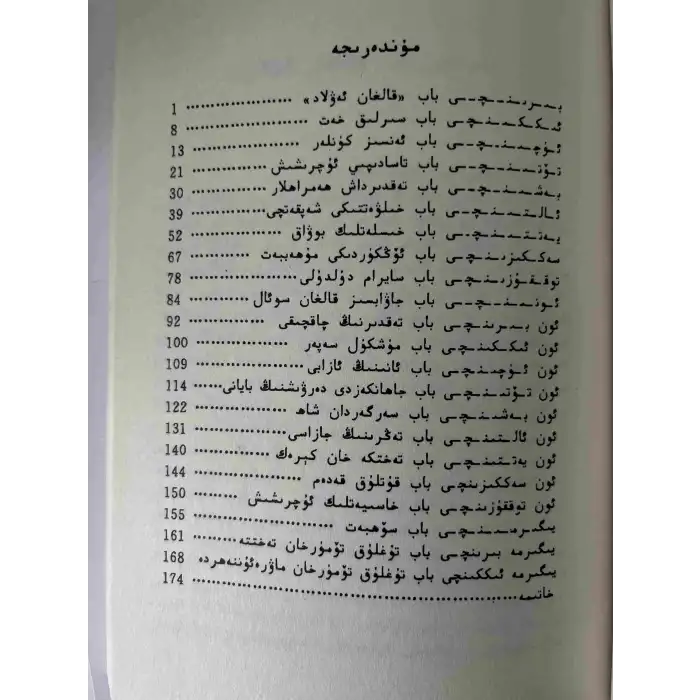 مۇندەرىجە
بىرىنچى باب «قالغان ئەۋلاد» ...................... 1
ئىككىنچى باب سىرلىق خەت ...................... 8
ئۈچىنچى باب ئەنسىز كۈنلەر ...................... 13
تۆتىنچى باب تاسادىپىي ئۇچرىشىش ................ 21
بەشىنچى باب تەقدىرداش ھەمراھلار ................ 30
ئالتىنچى باب خىلۋەتتىكى شەپقەتچى ................ 39
يەتتىنچى باب خىسلەتلىك بوۋاق .................. 52
سەككىزىنچى باب ئۆڭكۈردىكى مۇھەببەت ............ 67
توققۇزىنچى باب سايرام دۇلدۇلى .................. 78
ئونىنچى باب جاۋابسىز قالغان سوئال .............. 84
ئون بىرىنچى باب تەقدىرنىڭ چاقچىقى .............. 92
ئون ئىككىنچى باب مۈشكۈل سەپەر .................. 100
ئون ئۈچىنچى باب ئانىنىڭ ئازابى .................. 109
ئون تۆتىنچى باب جاھانكەزدى دەرۋىشنىڭ بايانى ...... 114
ئون بەشىنچى باب سەرگەردان شاھ .................. 122
ئون ئالتىنچى باب تەڭرىنىڭ جازاسى ................ 131
ئون يەتتىنچى باب تەختكە خان كېرەك .............. 140
ئون سەككىزىنچى باب قۇتلۇق قەدەم ................ 144
ئون توققۇزىنچى باب خاسىيەتلىك ئۇچرىشىش .......... 150
يىگىرمىنچى باب سۆھبەت ...................... 155
يىگىرمە بىرىنچى باب تۇغلۇق تۆمۈرخان تەختتە ........ 161
يىگىرمە ئىككىنچى باب تۇغلۇق تۆمۈرخان ماۋرەئۇننەھردە 168
خاتىمە .................................................. 174